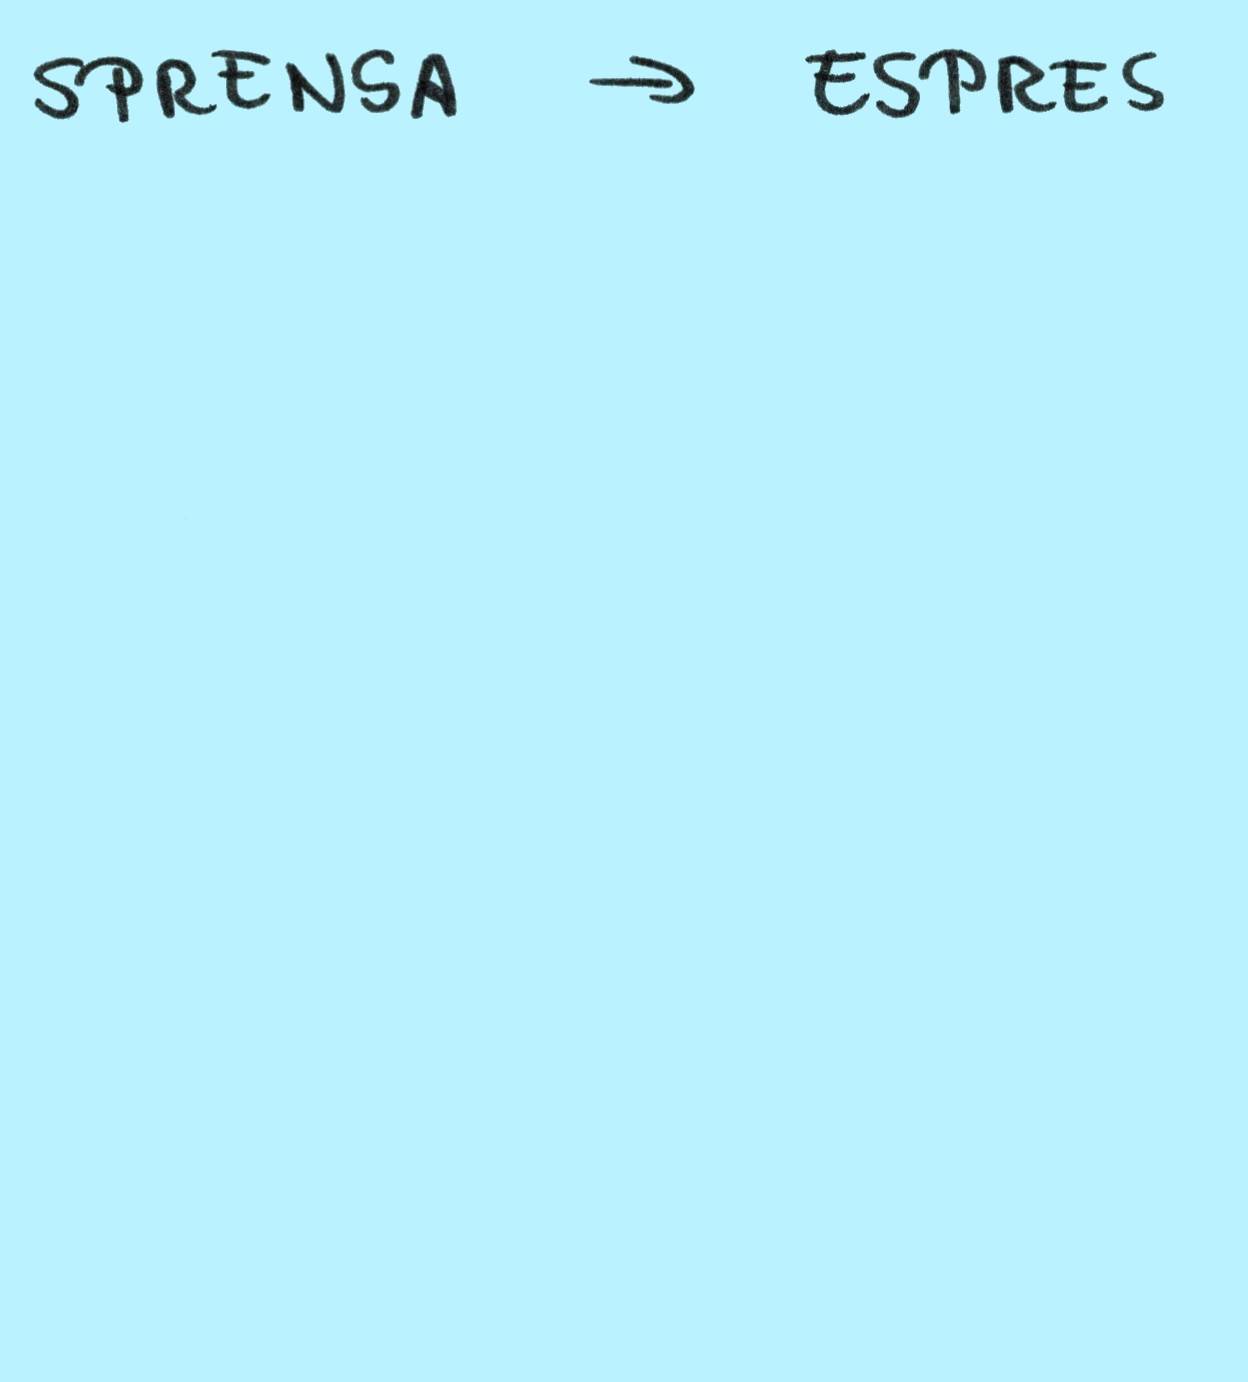 SPRENSA → ESPRES